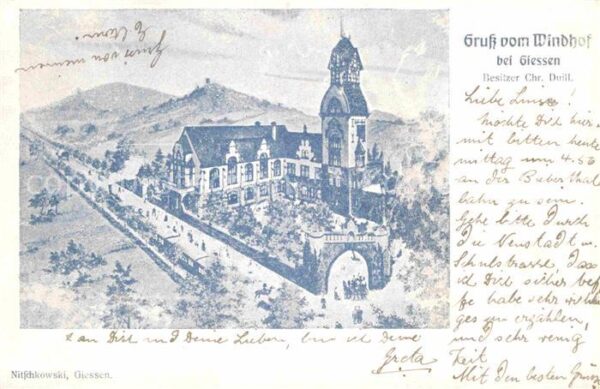 Gruß vom Windhof
bei Giessen
Besitzer Chr. Duill.
Liebe Luise!
möchte Dich hier-
mit bitten heute
mittag um 4.50
an der Bieberthal
bahn zu sein.
Gehe bitte durch
Die Neustadt u.
Schulstrasse, das
ich Dich sicher tref
fe habe sehr wich
ges zu erzählen,
und sehr wenig
Zeit
Mit den besten Grüss
an Dich und Deine Lieben, bin ich deine
Greta
Gruss von meinen
Eltern.
Nitschkowski, Giessen.